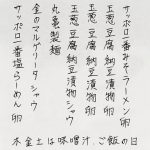 サッポロ一番みそラーメン 卵
玉葱 豆腐 納豆 漬物 卵
玉葱 豆腐 納豆 漬物 卵
玉葱 豆腐 納豆 漬物 シャウ
丸亀製麺
金のマルゲリータ シャウ
サッポロ一番塩らーめん 卵
木金土は味噌汁、ご飯の日